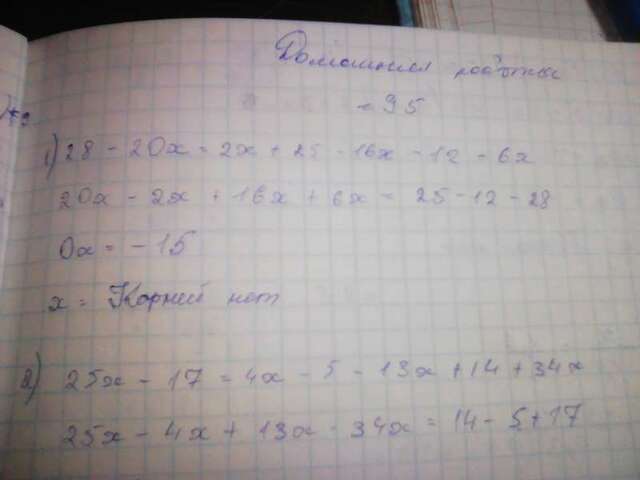 Домашния работы
- 95
1) 28 - 20x = 2x + 25 - 16x - 12 - 6x
20x - 2x + 16x + 6x = 25 - 12 - 28
0x = - 15
x = Корней нет
2) 25x - 17 = 4x - 5 - 13x + 14 + 34x
25x - 4x + 13x - 34x = 14 - 5 + 17